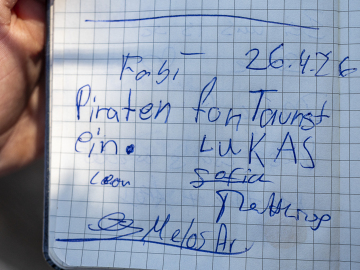 Fabi 26.4.26
Piraten fon Taunst
ein. LUKAS
Leon Sofia
Melos Ar